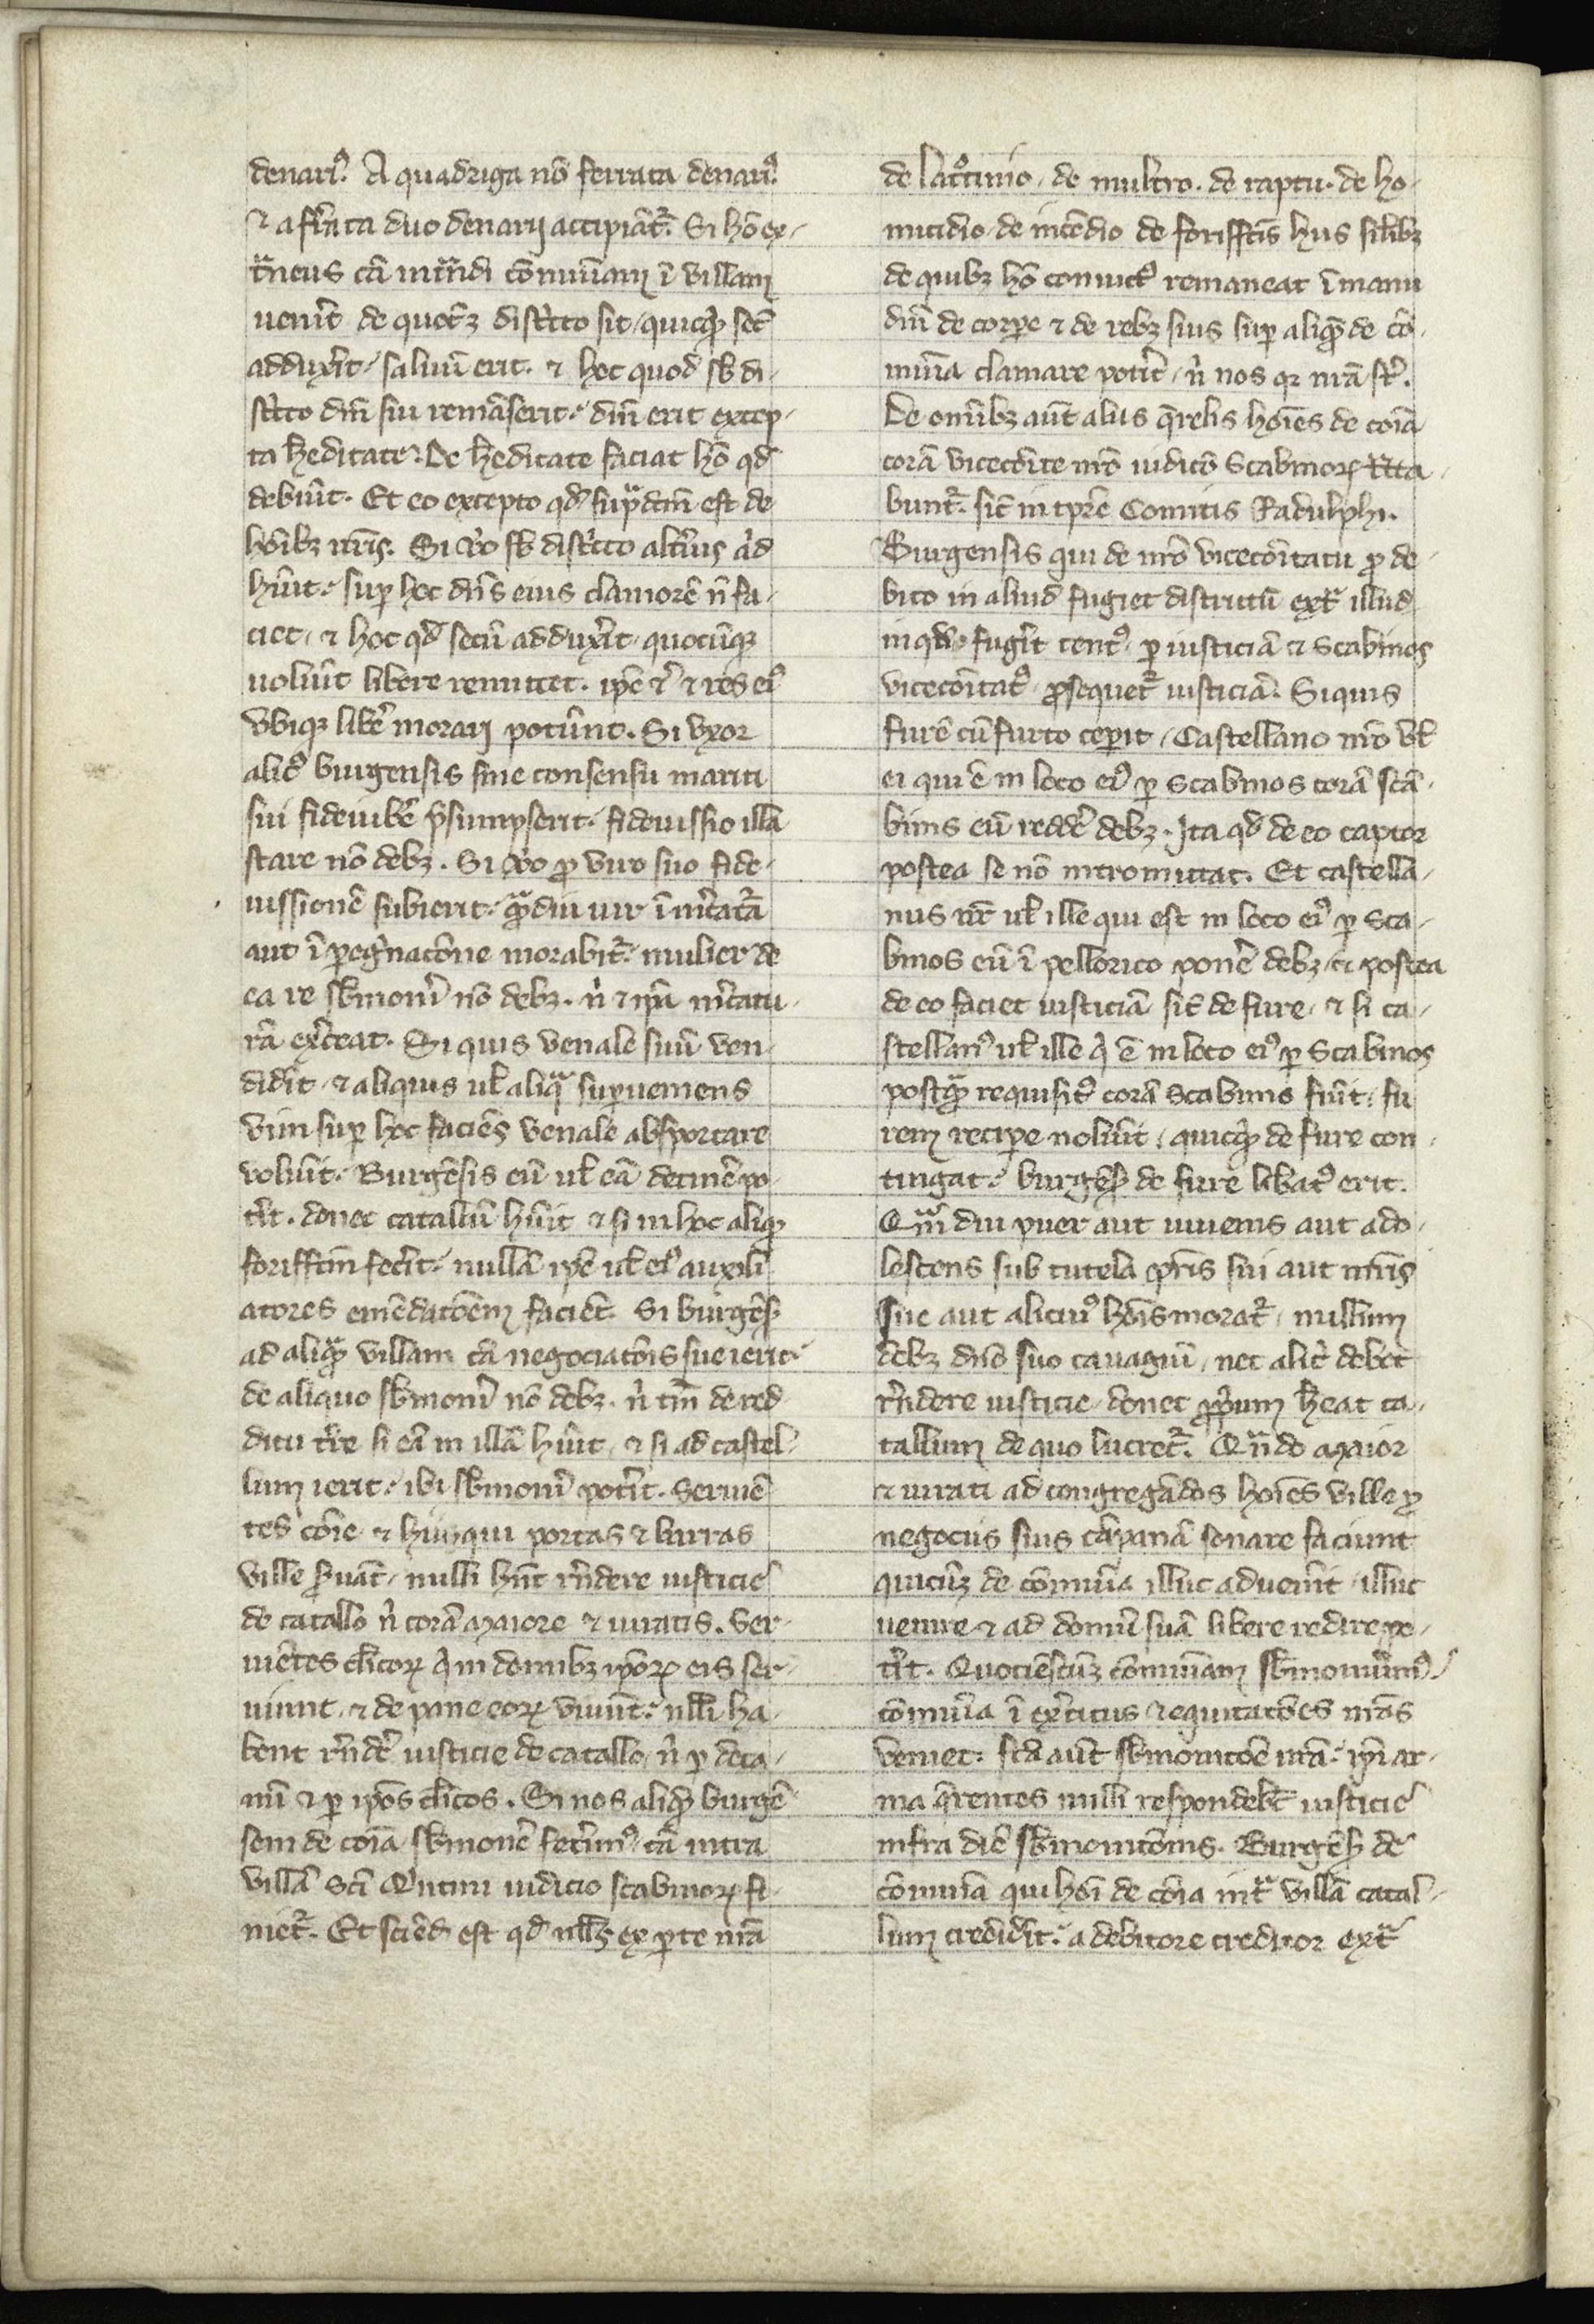 denariꝰ. A quadriga nō ferrata denariꝰ
⁊ a ferrata duo denarij accipiāt᷑. Si hō ex-
t̄neus cā intrādi cōmuniam ī villam
uen̄it de quocūq; districto sit, quicq̄d sec̄
adduxīt, saluū erit. ⁊ hoc quod sb̄ di-
st̄cto dn̄i sui remāserit, dn̄i erit excep-
ta heditate. De heditate faciat hō qd̄
debūit. Et eo excepto qd̄ sup̄dc̄m est de
hōibꝫ nr̄is. Si ṽo sb̄ dist̄cto alt̄ius aᵈd
hūit, suꝑ hoc dn̄s eius clamorē n̄ fa-
ciet, ⁊ hoc qd̄ secū adduxīt, quocūqꝫ
uolūit libere remittet. ip̄e et̄ ⁊ res eiꝰ
vbiqꝫ libē morari potūnt. Si vxor
alicꝰ burgensis sine consensu mariti
sui fideiubē p̄sumpserit, fideiussio illa
stare nō debꝫ. Si ṽo ꝓ viro suo fide-
iussionē subierit, q̄diu uir ī m̄catᷓa
aut ī peg̓nacōne morabit᷑, mulier de
ea re sb̄moni nō debꝫ. n̄ ⁊ ip̄a m̄catu-
rā ex̄ceat. Si quis venale suū ven-
did̄it, ⁊ aliquis ul̄ aliqᷓ suꝑueniens
vim suꝑ hoc faciēs venale absportare
volūit, Burgēsis eū ul̄ eā detinē po-
t̄it. donec catallū hūit ⁊ si in hoc aliqᵈ
foriffcm̄ fec̄it, nullā ip̄e ul̄ eiꝰ auxili-
atores emēdatōem faciēt. Si burgēs̄
ad aliqᷓ villam cā negociatōis sue ierit,
de aliquo sb̄moni nō debꝫ. n̄ tm̄ de red-
ditu t̄re si eā in illā hūit, ⁊ si ad castel-
lum ierit, ibi sb̄moni pot̄it. Seruiē
tes cōie ⁊ hij qui portas ⁊ barras
ville ẜuāt, nulli hn̄t rn̄dere iusticie
de catallo n̄ corā maiore ⁊ iuratis. Ser-
uiētes cl̄icoꝝ qͥ in domibꝫ ip̄oꝝ eis ser-
uiunt, ⁊ de pane eoꝝ viuūt, nll̄i ha-
bent rn̄dē iusticie de catallo, n̄ ꝑ deca-
nū ⁊ ꝑ ip̄os cl̄icos. Si nos aliqᵐ burgē
sem de cōia sb̄monē fec̄imꝰ, cā intra
villā Sc̄i Quītini iudicio scabinoꝝ fi-
niet᷑. Et sciēd̄ est qd̄ nll̄s ex ꝑte nr̄a
de latᵒcinio, de multro. de raptu. de ho-
micidio, de incēdio de foriffctīs hijs sil̄ibꝫ
de quibꝫ hō conuictꝰ remaneat ī manu
dn̄i de corꝑe ⁊ de rebꝫ suis suꝑ aliqᷓ de cō-
mun̄a clamare pot̄it, n̄ nos qꝫ nr̄a st̄.
De omībꝫ aūt alijs q̄relis hōies de cōia
corā vicecōite nr̄o iudicō Scabinoꝝ t̄cta-
bunt᷑, sic̄ in tp̄re Comitis Radulphi.
Burgensis qui de nr̄o vicecōitatu ꝓ de-
bito in aliud fugiet districtū ext̄ illud
in qᵈ fugīt tentꝰ, ꝑ iusticiā ⁊ Scabinos
vicecōitatꝰ ꝓsequet᷑ iusticiā. Si quis
furē cū furto ceꝑit, Castellano nr̄o vl̄
ei qui ē in loco eiꝰ ꝑ Scabinos corā scā-
binis eū reddē debꝫ. Ita qd̄ de eo captor
postea se nō intromittat. Et castella-
nus nr̄ ul̄ ille qui est in loco eiꝰ ꝑ Sca-
binos eū ī pellorico ponē debꝫ, ⁊ postea
de eo faciet iusticiā sic̄ de fure, ⁊ si ca-
stellanꝰ ul̄ ille qͥ ē in loco eiꝰ ꝑ Scabinos
postqᷓ requisitꝰ corā Scabinis fūit, fu
rem reciꝑe nolūit, quicqᵈ de fure con-
tingat, burgēs̄ de fure libatꝰ erit.
Qᷓmdiu puer aut iuuenis aut ado-
lescens sub tutela pr̄is sui aut mr̄is
sue aut alicuiꝰ hōis morat᷑, nullum
debꝫ dn̄o suo cauagiū, nec alit̄ debet
rn̄dere iusticie, donec ꝓp̓um heat ca-
tallum de quo lucret᷑. Qn̄do maior
⁊ iurati ad congregādos hōies ville ꝓ
negociis suis cāpanā sonare faciunt
quicūqꝫ de cōmun̄a illuc aduen̄it, illuc
uenire ⁊ ad domū suā libere redire po-
t̄it. Quociēscūqꝫ cōmuniam sb̄monuīmꝰ,
cōmun̄a ī ex̄citus ⁊ equitatōes nr̄as
veniet. fc̄a aūt sb̄monitōe nr̄a, ip̄i ar-
ma q̄rentes nulli respondebt̄ iusticie
infra diē sb̄monitōnis. Burgēs̄ de
cōmun̄a qui hōi de cōia int̄ villā catal-
lum credid̄it, a debitore creditor ext̄